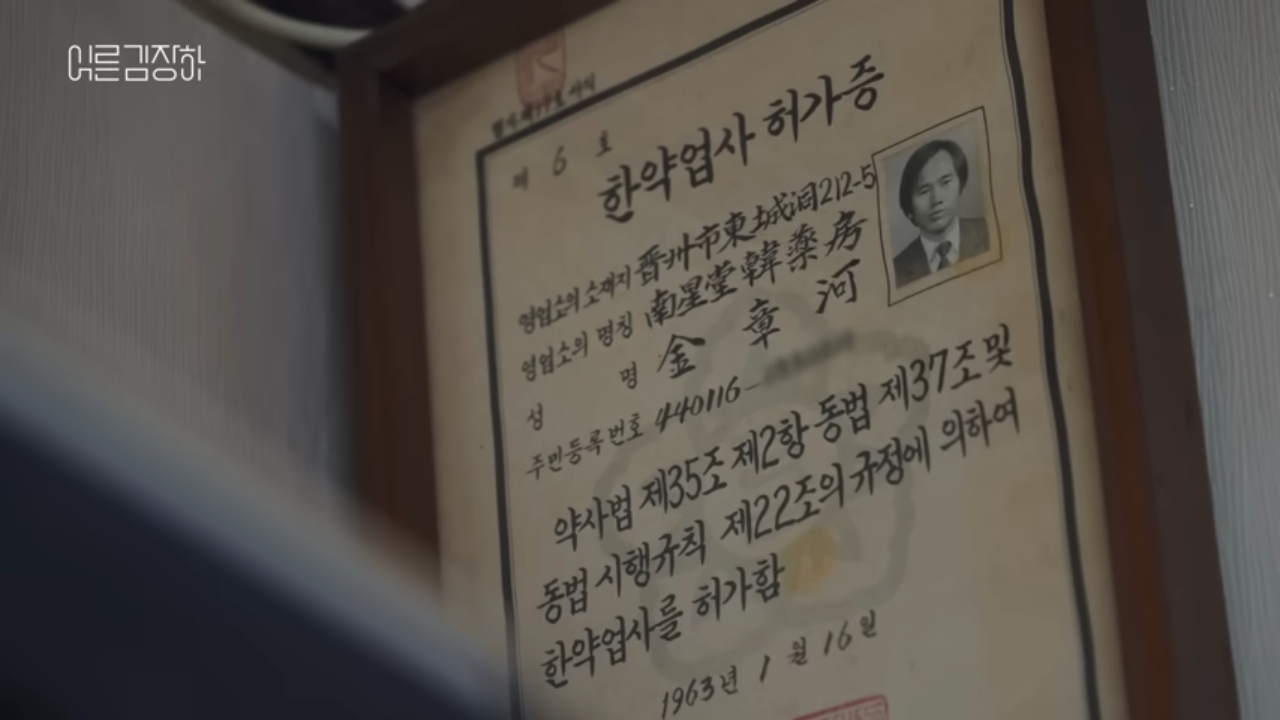 어른김장하
제 6 호
한약업사 허가증
영업소의 소재지 晋州市東城洞212-5
영업소의 명칭 南星堂韓藥房
성 명 金章河
주민등록번호 440116-
약사법 제35조 제2항 동법 제37조 및
동법 시행규칙 제22조의 규정에 의하여
한약업사를 허가함
1963년 1월 16일